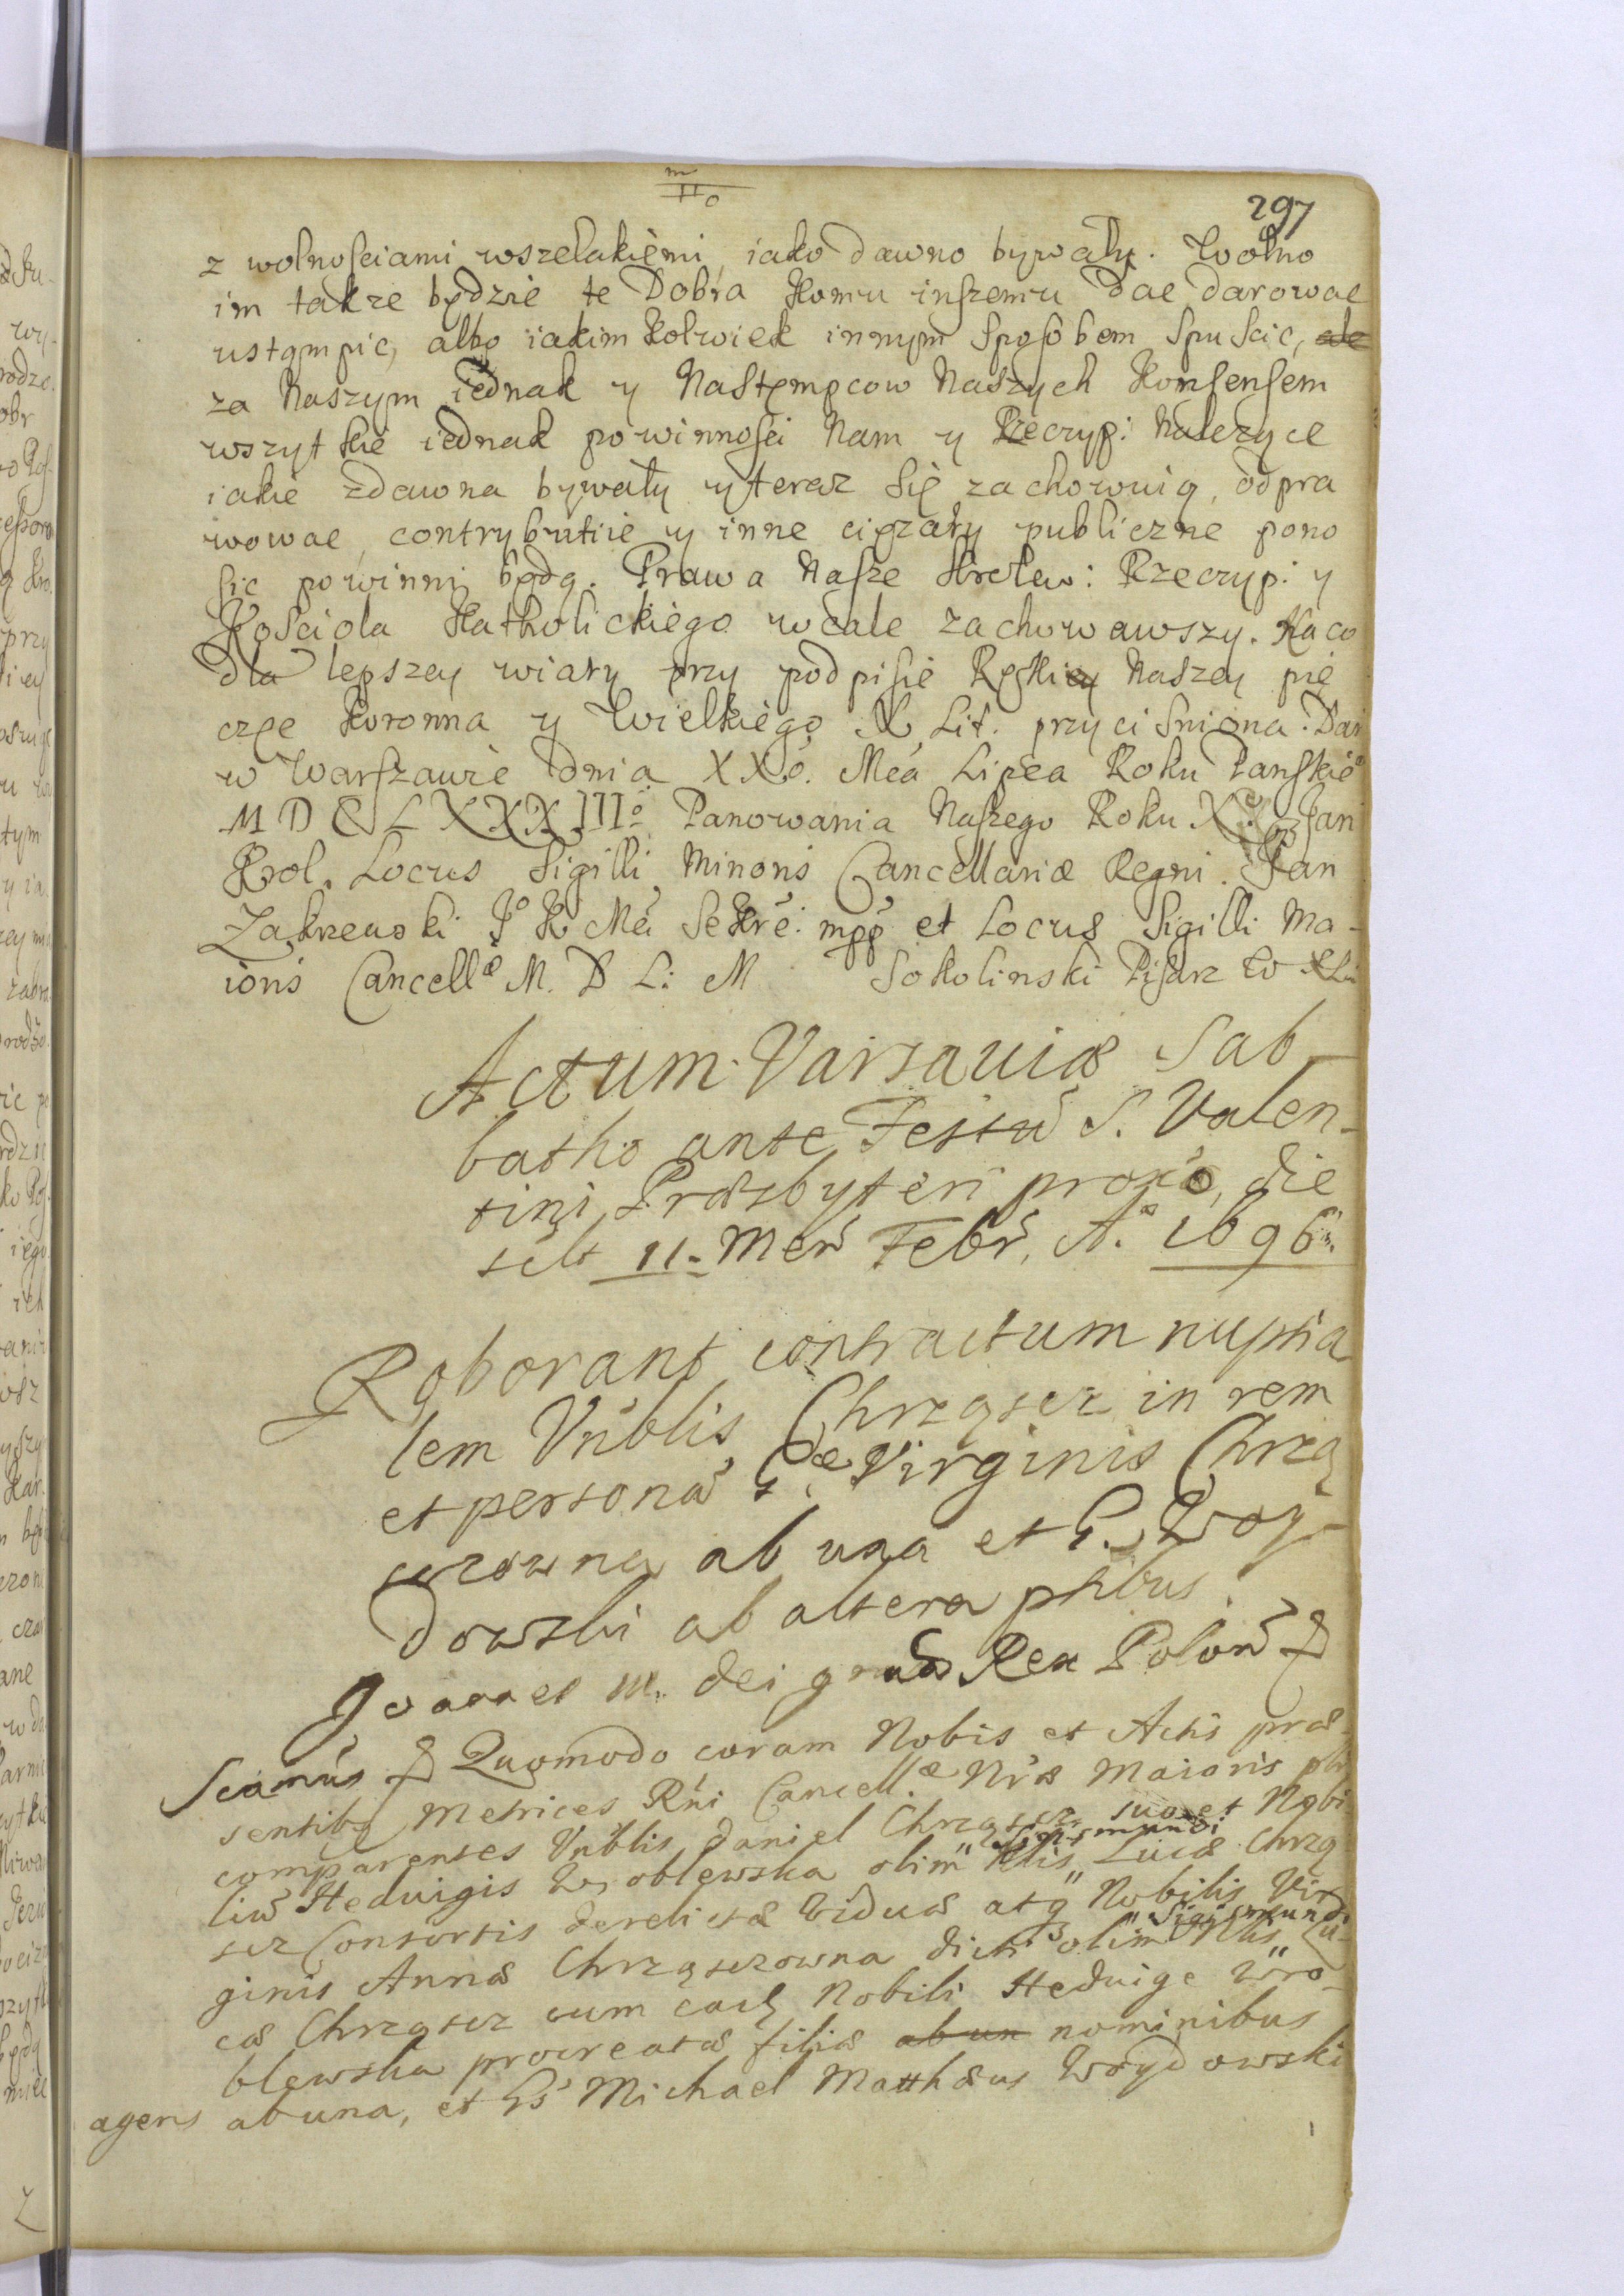 297
z wolnosciami wszelakiemi, iako dawno bywały. Wolno
im takze będzie te Dobra komu inszemu dac darowac
ustąmpic, albo iakimkolwiek innym sposobem spuscic, ale
za Naszym iednak y Nastempcow Naszych konsensem
wszytkie iednak powinnosci Nam y Rzeczyp: Należyce
iakie zdawna bywały y teraz się zachowuią, odpra
wowac, contrybutiie y inne ciężary publiczne pono
sic powinni będą. Prawa Nasze Krolew: Rzeczyp: y
Kosciola Katholickiego wcale zachowawszy. Na co
dla lepszey wiary przy podpisie Ręki Naszey pie
częc koronna y Wielkiego X Lit. przycisniona. Dan
w Warszawie dnia XXo. Mca Lipca Roku Panskieo
MDCLXXXIIIo Panowania Naszego Roku X. Jan
Krol. Locus Sigilli Minoris Cancellariæ Regni. Jan
Zakrzewski Jo K Mci Sekre: mpp et Locus Sigilli Ma-
ioris Cancellæ M. D L: M Sokolinski Pisarz W X Li
Actum Varsaviæ Sab
batho ante Festũ S. Valen-
tini Præsbyteri proxo, die
silt 11. Men Febr, Ao 1696.
Roborant contractum nuptia
lem Vnblis Chrząscz in rem
et personã Gæ Virginis Chrzą
sczowna ab una et G. Woy
dowski ab altera ptibus.
Joannes III. Dei gratia Rex Polon
Scimus Quomodo coram Nobis et Actis præ-
sentibq Metrices Rni Cancellæ Nræ Maioris pltr
comparentes Vnblis Daniel Chrząscz suo et Nobi
liũ Heduigis Wroblewska olim Nblis " Sigismundi " Lucæ Chrzą
scz Consortis derelictæ Viduæ atq Nobilis Vir
ginis Annæ Chrząsczowna dicti olim Nblis " Sigismundi " Lu-
cæ Chrząscz cum eadę Nobili Heduige Wro-
blewska procreatæ filiæ ab un nominibus
agens ab una, et Gs Michael Matthæus Woydowski